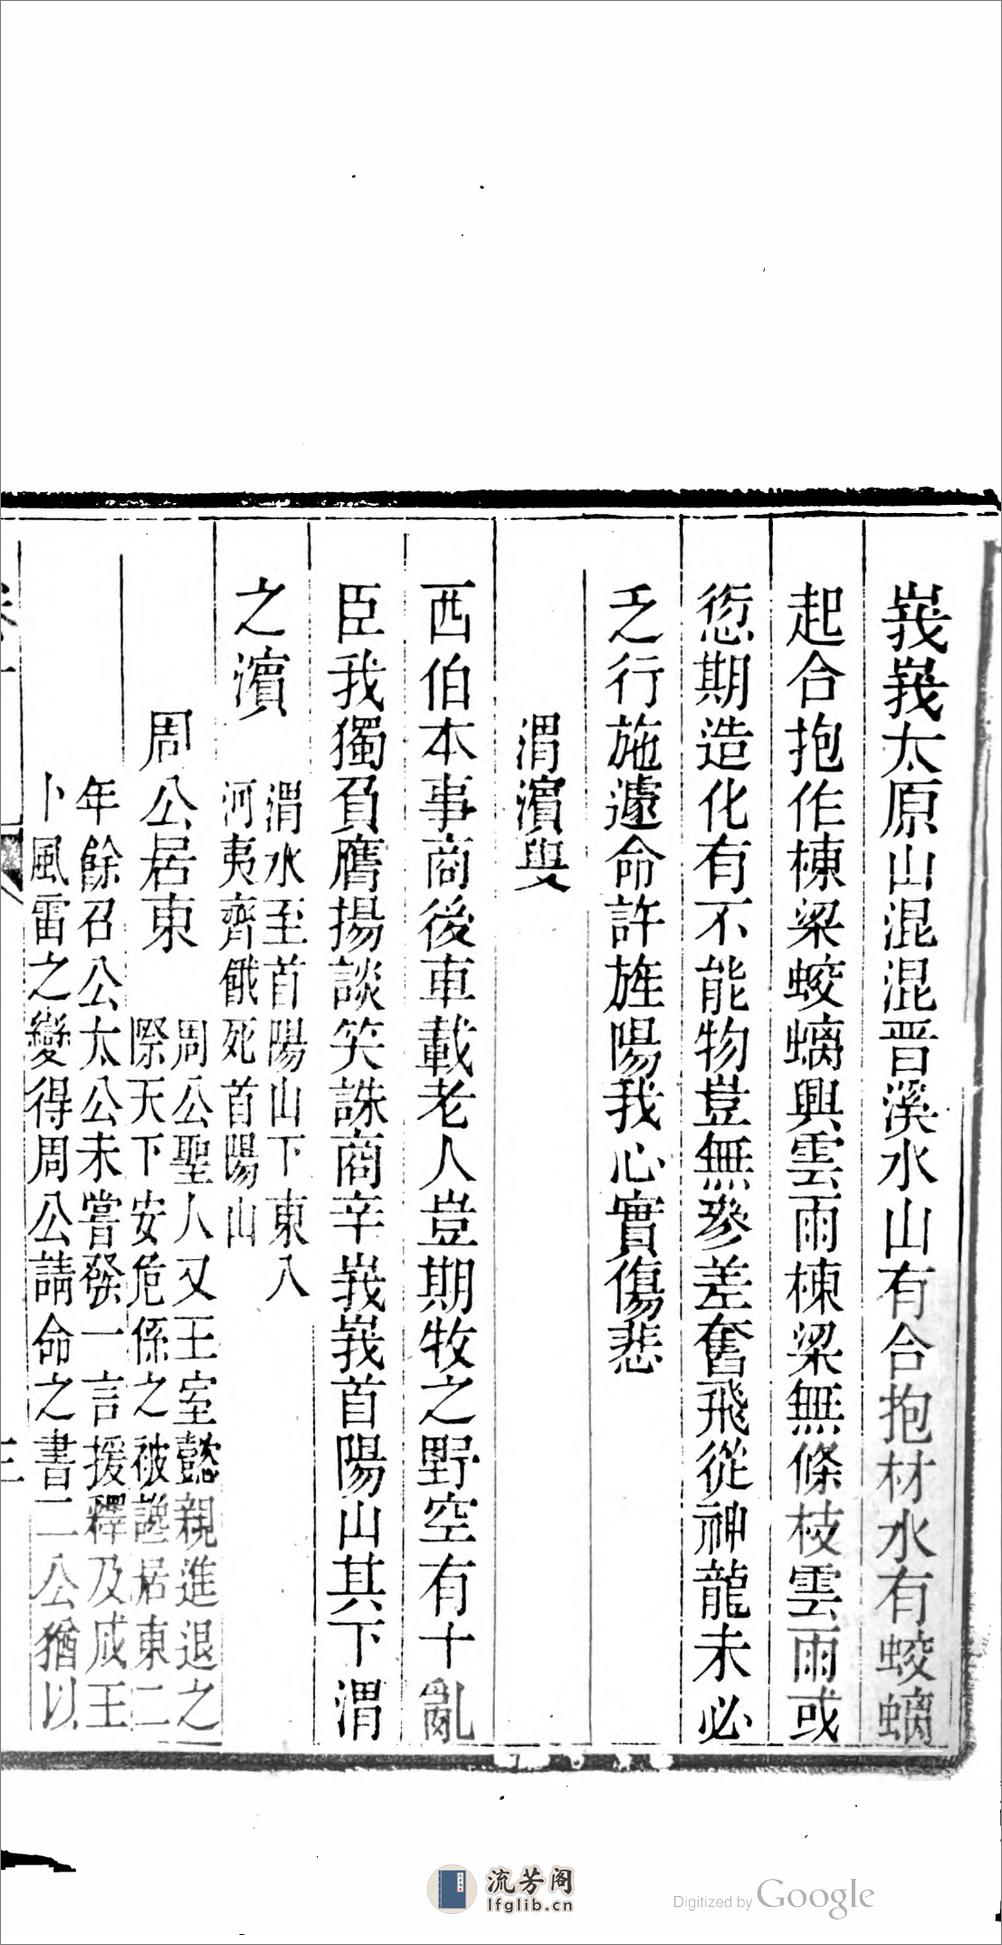 峩峩太原山混混晋溪水山有合抱材水有蛟螭
起合抱作棟梁蛟螭興雲雨棟梁無條枝雲雨或
愆期造化有不能物豈無參差奮飛從神龍未必
乏行施遽命許旌陽我心實傷悲
渭濱叟
西伯本事商後車載老人豈期牧之野空有十亂
臣我獨負鷹揚談笑誅商辛峩峩首陽山其下渭
之濱
渭水至首陽山下東入
河夷齊餓死首陽山
周公居東
周公聖人又王室懿親進退之
際天下安危係之被讒居東二
年餘召公太公未嘗發一言援釋及成王
卜風雷之變得周公請命之書二公猶以
三
流芳阁
lfglib.cn
Digitized by Google